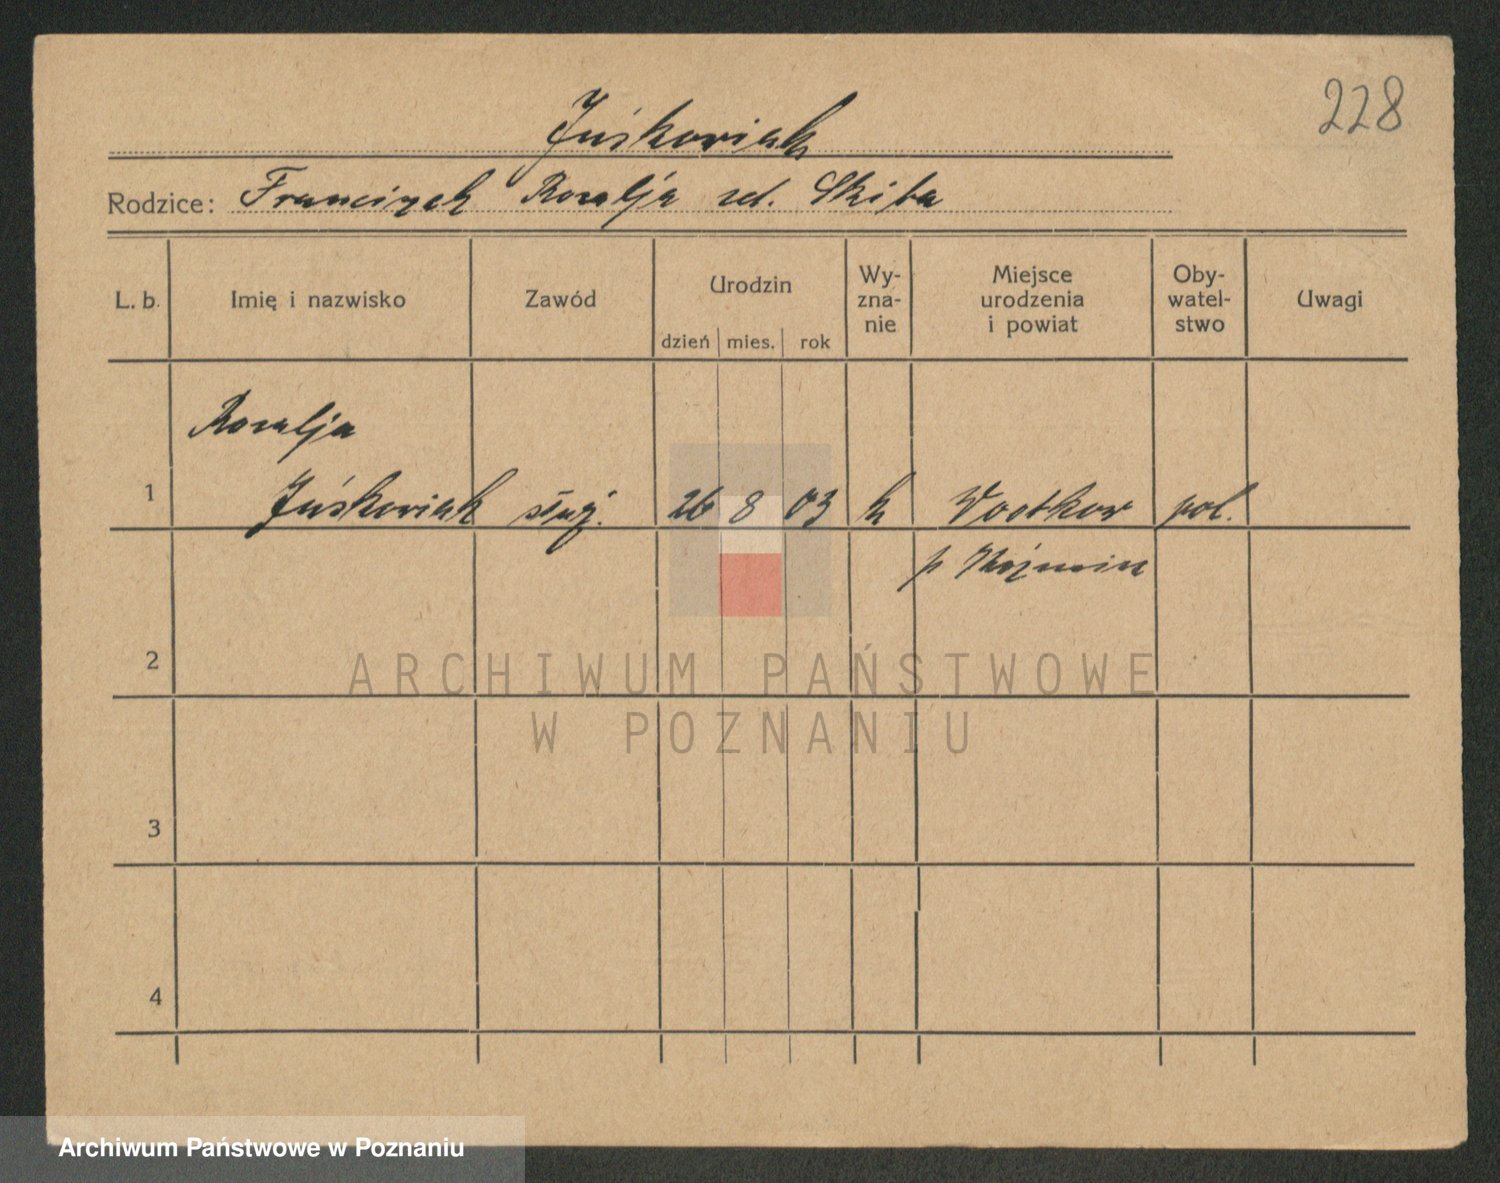 228
Juśkowiak
Rodzice: Franciszek Rozalja rd. Skiba
L. b. Imię i nazwisko Zawód Urodzin dzień mies. rok Wy-zna-nie Miejsce urodzenia i powiat Oby-watel-stwo Uwagi
Rozalja
1 Juśkowiak służ. 26 8 03 k pol.
p
2
ARCHIWUM PAŃSTWOWE
W POZNANIU
3
4
Archiwum Państwowe w Poznaniu